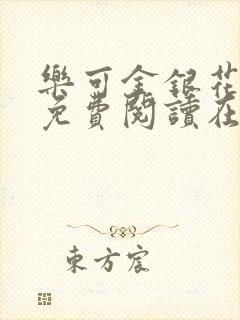 樂可金銀花
免費閱讀在
東方宸